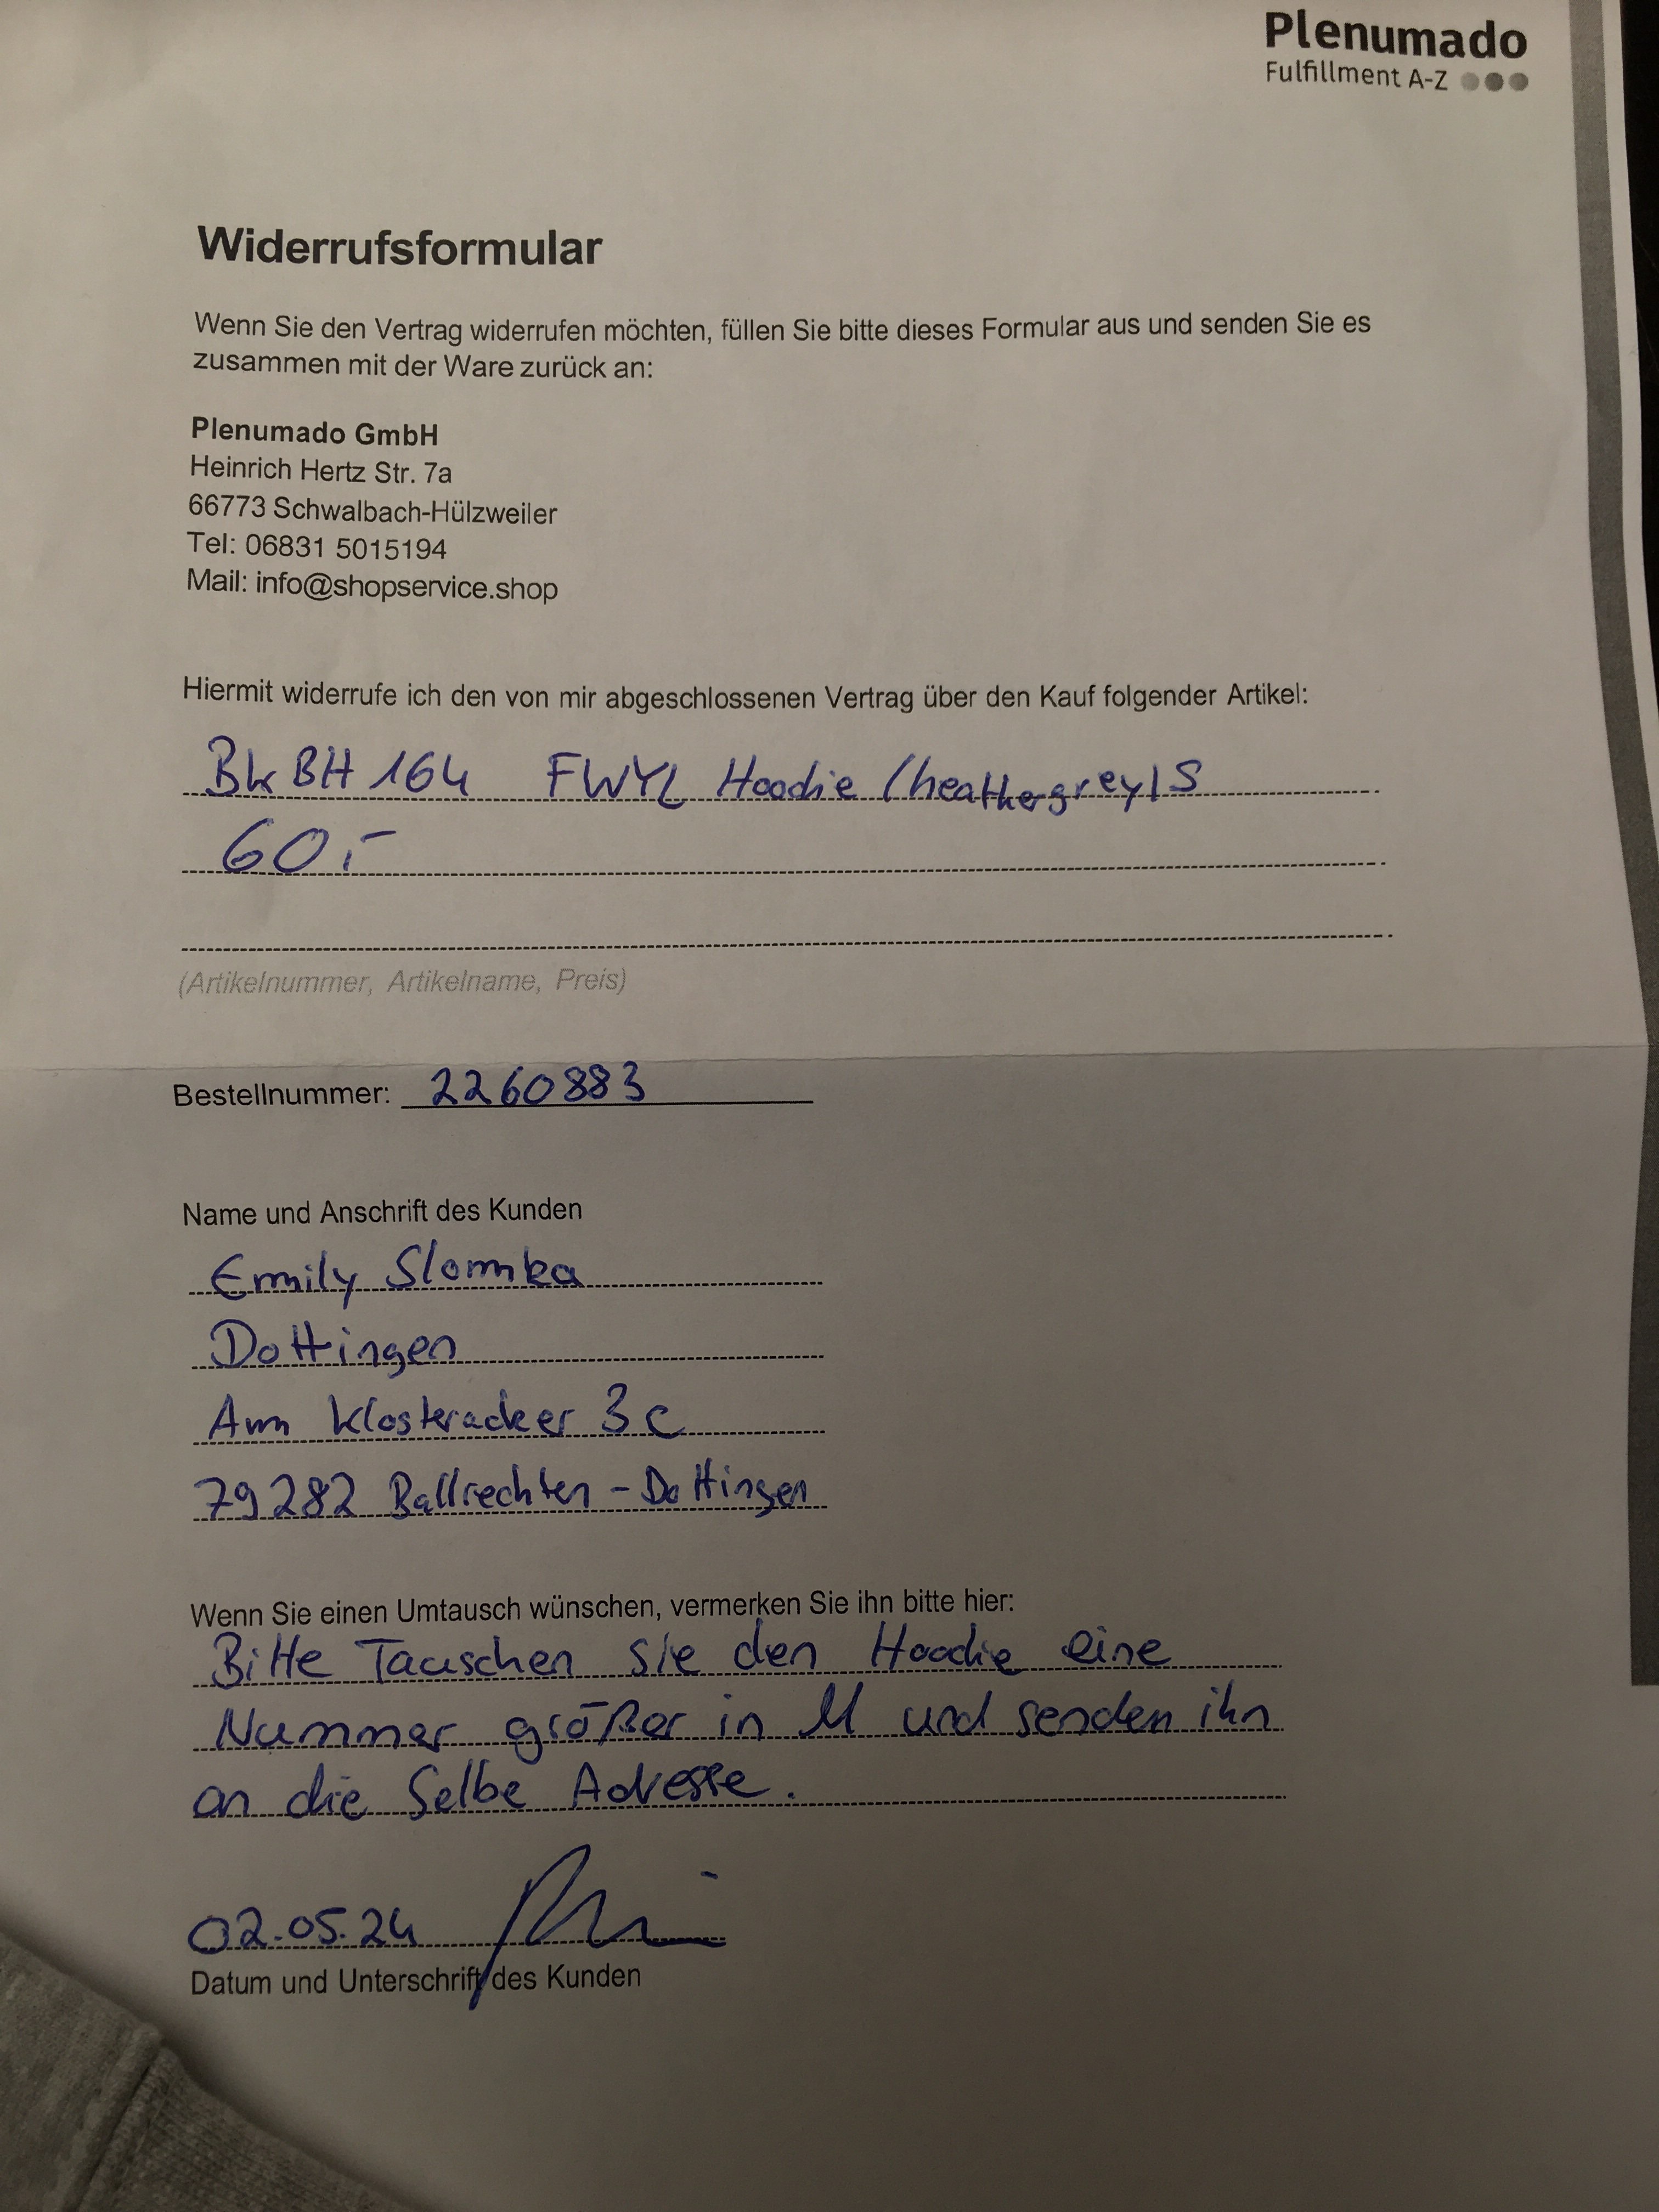 Plenumado
Fulfillment A-Z
Widerrufsformular
Wenn Sie den Vertrag widerrufen möchten, füllen Sie bitte dieses Formular aus und senden Sie es
zusammen mit der Ware zurück an:
Plenumado GmbH
Heinrich Hertz Str. 7a
66773 Schwalbach-Hülzweiler
Tel: 06831 5015194
Mail: info@shopservice.shop
Hiermit widerrufe ich den von mir abgeschlossenen Vertrag über den Kauf folgender Artikel:
BkBH 164 FWYL Hoodie (heathergrey) S
60,-
(Artikelnummer, Artikelname, Preis)
Bestellnummer: 2260883
Name und Anschrift des Kunden
Emily Slomka
Dottingen
Am Klosteracker 3c
79282 Ballrechten-Dottingen
Wenn Sie einen Umtausch wünschen, vermerken Sie ihn bitte hier:
Bitte Tauschen sie den Hoodie eine
Nummer größer in M und senden ihn
an die Selbe Adresse.
02.05.24
Datum und Unterschrift des Kunden